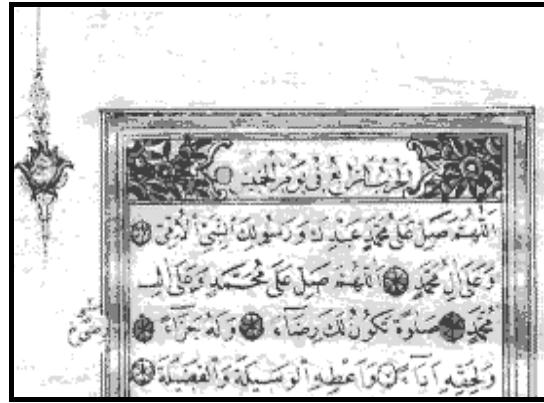 الحزب الرابع في يوم
اَللّٰهُمَّ صَلِّ عَلٰى مُحَمَّدٍ عَبْدِكَ وَرَسُولِكَ النَّبِىِّ الْاُمِّىِّ
وَعَلٰى اٰلِ مُحَمَّدٍ اَللّٰهُمَّ صَلِّ عَلٰى مُحَمَّدٍ وَعَلٰى اٰلِ
مُحَمَّدٍ صَلٰوةً تَكُونُ لَكَ رِضَاءً وَلَهُ جَزَاءً
وَلِحَقِّهِ اَدَاءً وَاَعْطِهِ الْوَسِيلَةَ وَالْفَضِيلَةَ